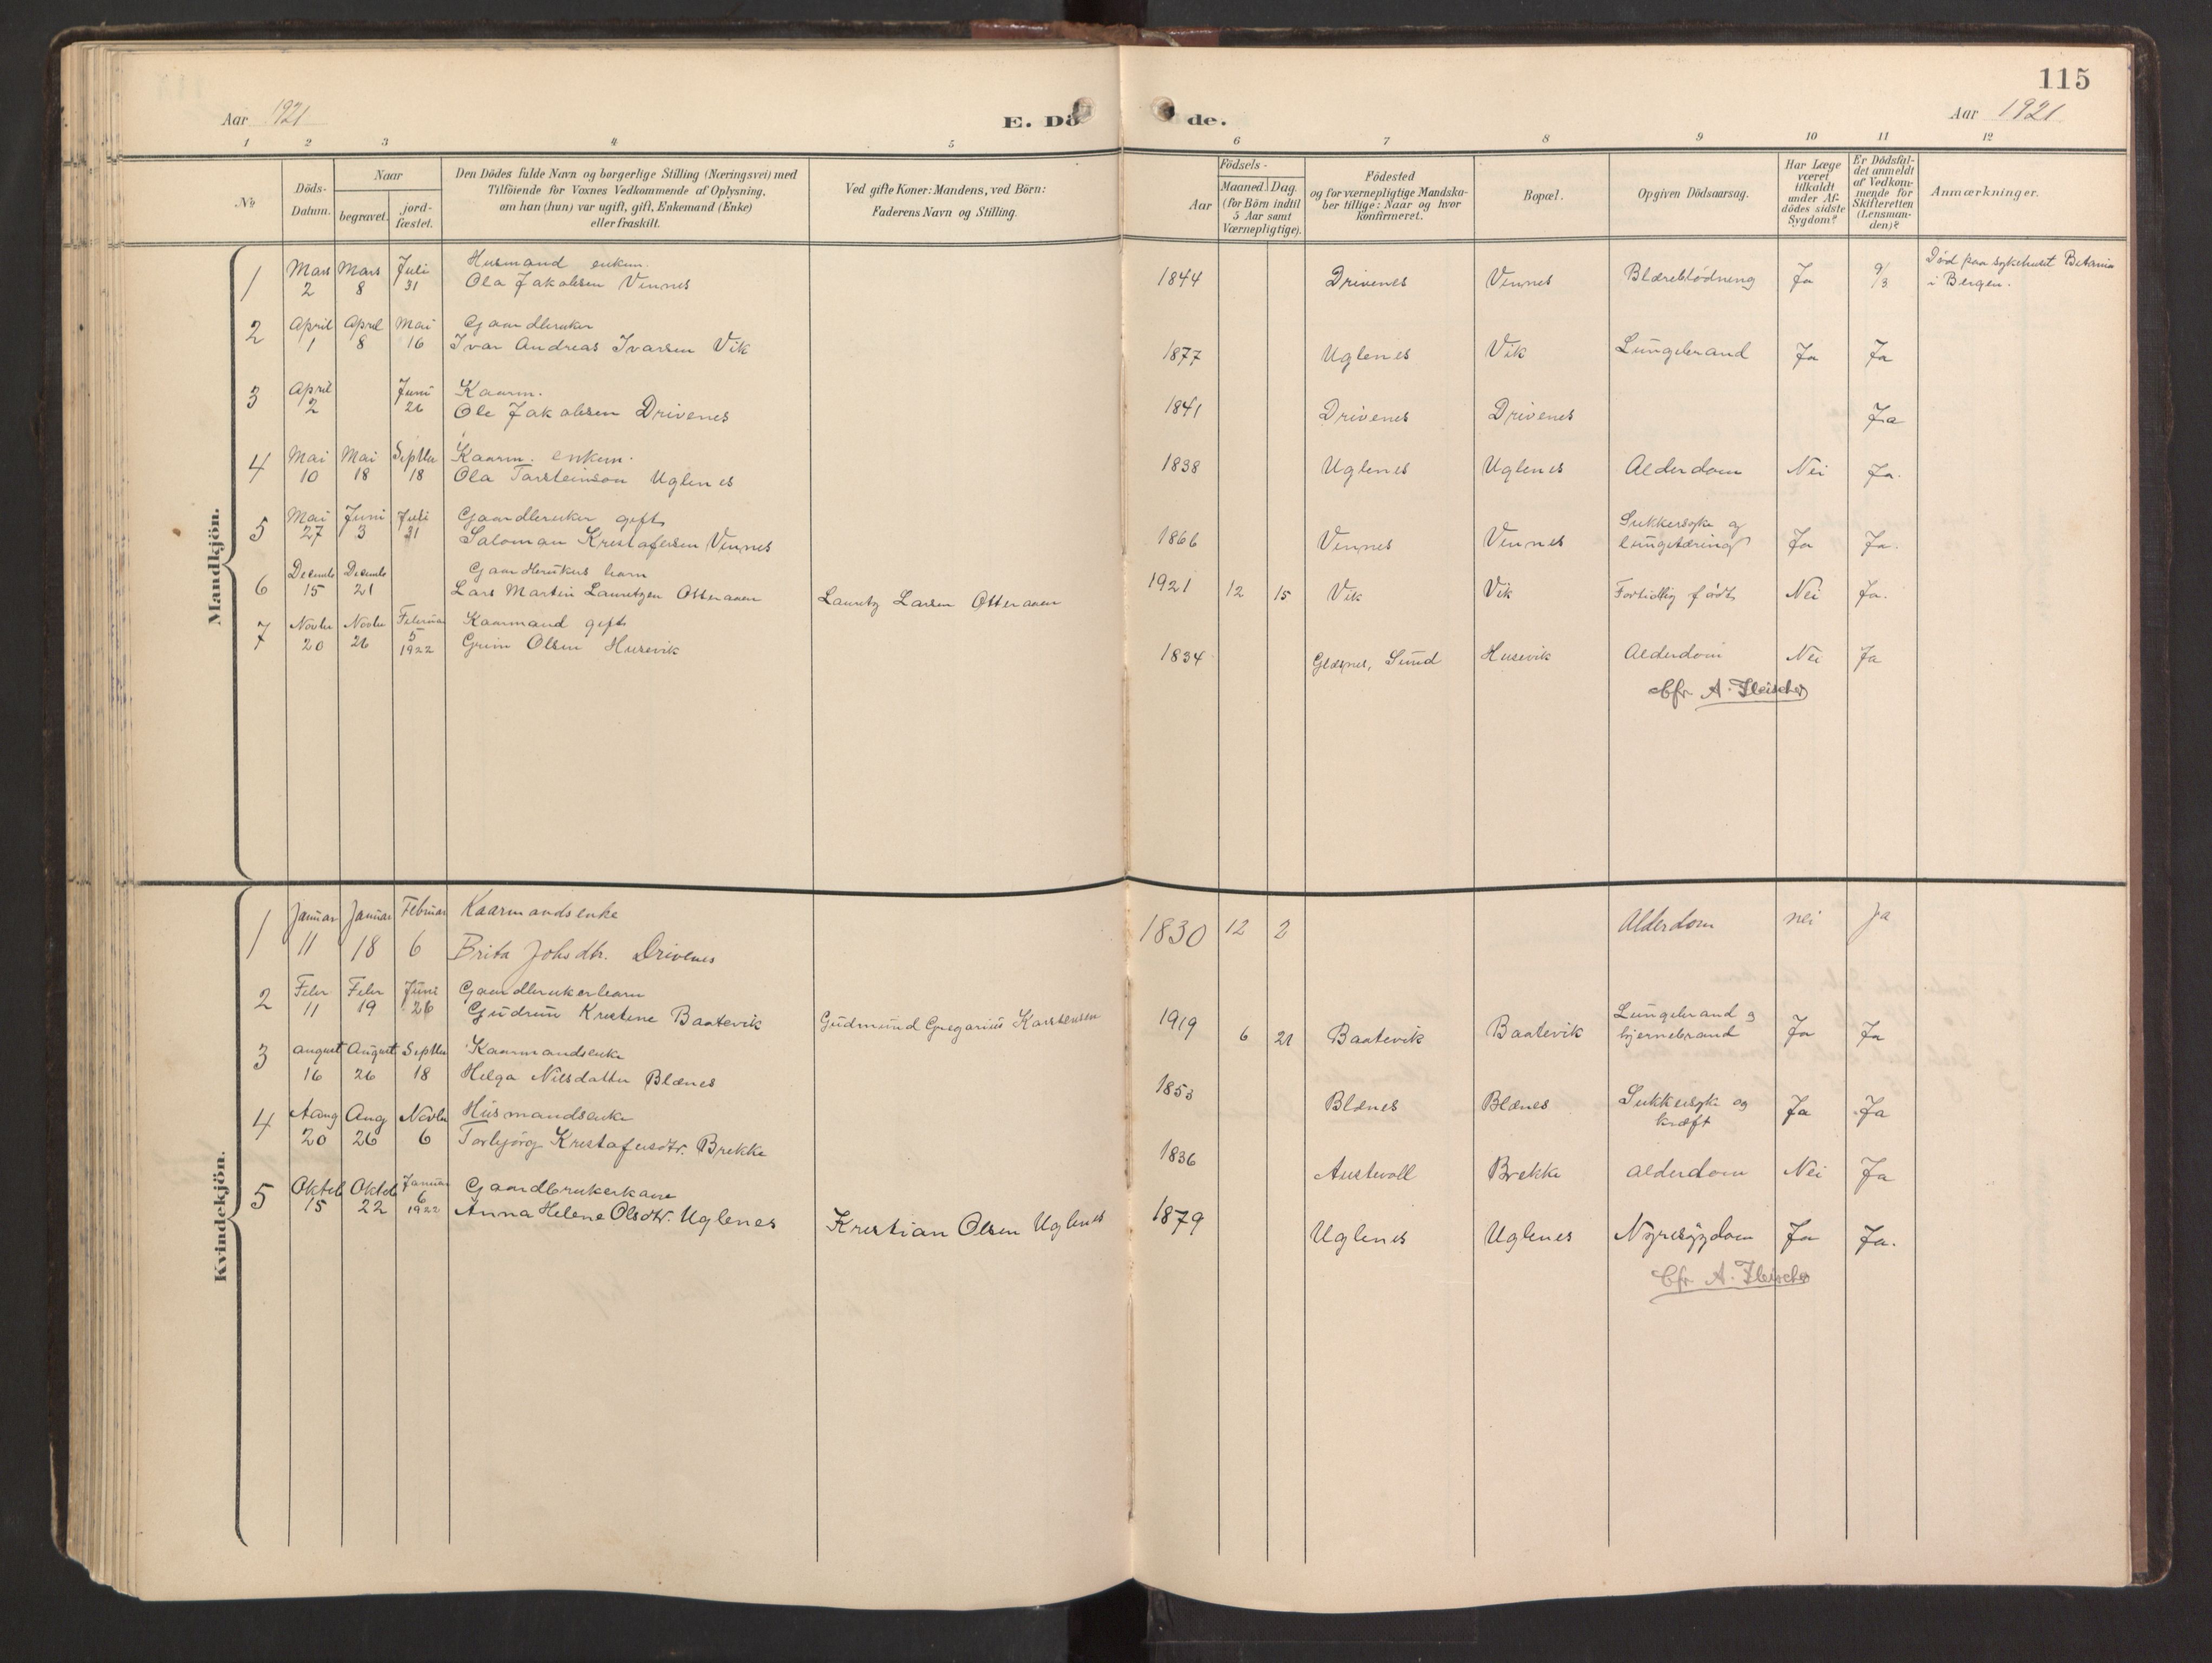 115
Aar 1921
E. Dö de.
Aar 1921
1 2 3 4 5 6 7 8 9 10 11 12
No
Döds-
Datum.
Naar
begravet.
jord-
fæstet.
Den Dödes fulde Navn og borgerlige Stilling (Næringsvei) med
Tilföiende for Voxnes Vedkommende af Oplysning,
om han (hun) var ugift, gift, Enkemand (Enke)
eller fraskilt.
Ved gifte Koner: Mandens, ved Börn:
Faderens Navn og Stilling.
Aar
Födsels-
Maaned. Dag.
(for Börn indtil
5 Aar samt
Værnepligtige).
Födested
og for værnepligtige Mandska-
ber tillige: Naar og hvor
konfirmeret.
Bopæl.
Opgiven Dödsaarsag.
Har Læge
været
tilkaldt
under Af-
dödes sidste
Sygdom?
Er Dödsfal-
det anmeldt
af Vedkom-
mende for
Skifteretten
(Lensman-
den)?
Anmærkninger.
Mandkjön.
Mars Mars Juli Husmand enkem. Død paa sykehuset Betania
1 2 8 31 Ola Jakobsen Vinnes 1844 Drivenes Vinnes Blæreblödning Ja 9/3 i Bergen.
April April Mai Gaardbruker
2 1 8 16 Ivar Andreas Ivarsen Vik 1877 Uglenes Vik Lungebrand Ja Ja
April Juni Kaarm.
3 2 26 Ole Jakobsen Drivenes 1841 Drivenes Drivenes Ja
Mai Mai Septbr Kaarm. enkem.
4 10 18 18 Ola Torsteinson Uglenes 1838 Uglenes Uglenes Alderdom Nei Ja.
Mai Juni Juli Gaardbruker gift Sukkersyke og
5 27 3 31 Saloman Kristofersen Vinnes 1866 Vinnes Vinnes lungetæring Ja Ja.
Decembr Decembr Gaardbrukers barn
6 15 21 Lars Martin Lauritzen Otteraaen Lauritz Larsen Otteraaen 1921 12 15 Vik Vik Fortidlig født Nei Ja.
Novbr Novbr Februar Kaarmand gift
7 20 26 5 1922 Grim Olsen Husevik 1834 Glesnes, Sund Husevik Alderdom Nei Ja
Cfr. A. Fleischer
Kvindekjön.
Januar Januar Februar Kaarmandsenke
1 11 18 6 Brita Johsdtr. Drivenes 1830 12 2 Alderdom nei ja
Febr Febr Juni Gaardbrukerbarn Lungebrand og
2 11 19 26 Gudrun Kristine Baatevik Gudmund Gregarius Karstensen 1919 6 21 Baatevik Baatevik hjernebrand Ja Ja
August August Septbr Kaarmandsenke Sukkersyke og
3 16 26 18 Helga Nilsdatter Blænes 1853 Blænes Blænes kræft Ja Ja
Aaug Aug Novbr Husmandsenke
4 20 26 6 Torbjörg Kristofersdtr. Brekke 1836 Austevoll Brekke alderdom Nei Ja
Oktob Oktob Januar Gaardbrukerkone
5 15 22 6 1922 Anna Helene Olsdtr. Uglenes Kristian Olsen Uglenes 1879 Uglenes Uglenes Nyresygdom Ja Ja.
Cfr. A. Fleischer